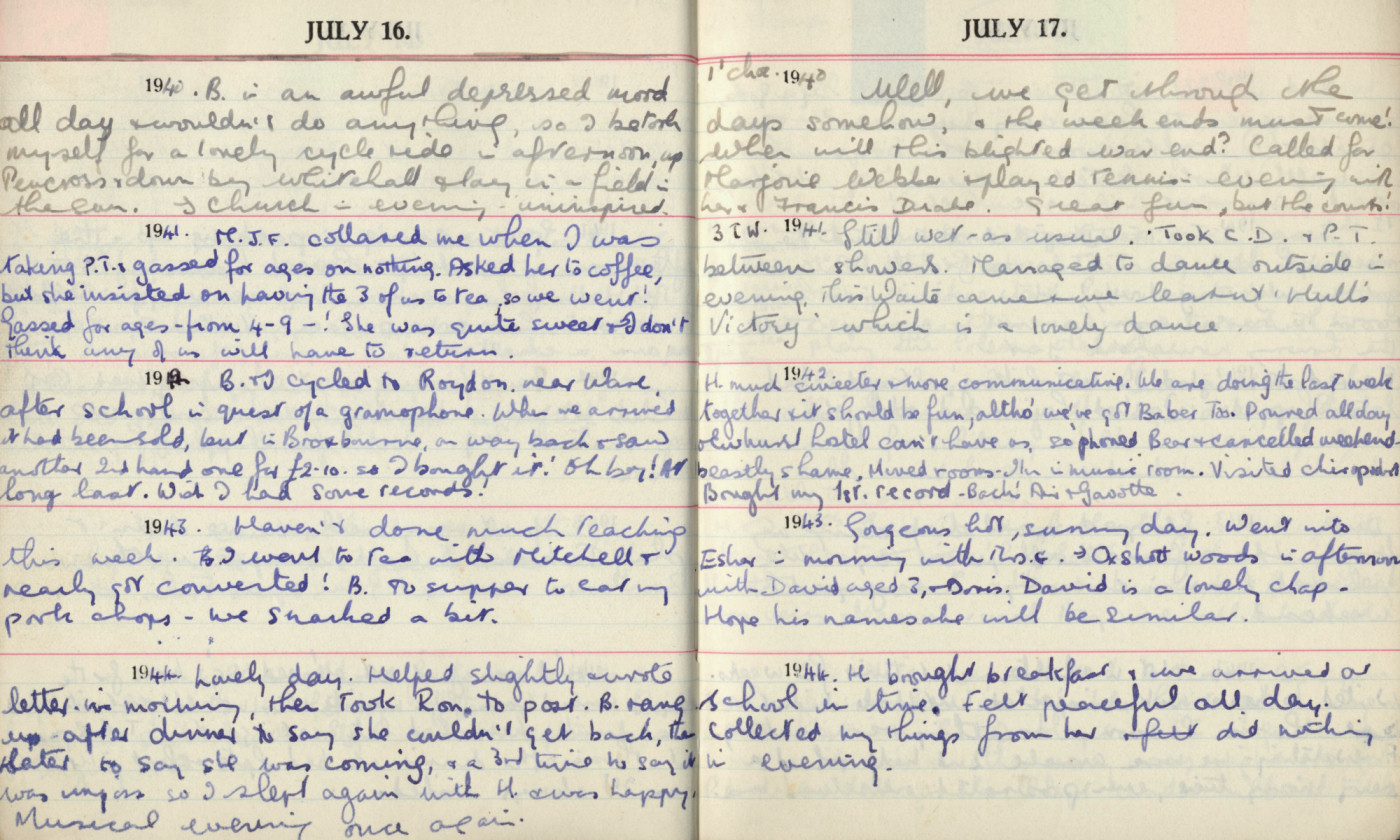 JULY 16.
1940. B. in an awful depressed mood
all day & wouldn't do anything, so I betook
myself for a lonely cycle ride in afternoon, up
Pencross & down by Whitehall & lay in a field in
the sun. I church in evening - uninspired.
1941. M.J.F. collared me when I was
taking P.T. & gassed for ages on nothing. Asked her to coffee,
but she insisted on having the 3 of us to tea, so we went!
Gassed for ages - from 4-9 - ! She was quite sweet & I don't
think any of us will have to return.
1942 B. & I cycled to Roydon, near Ware
after school in quest of a gramophone. When we arrived
it had been sold, but in Broxbourne, on way back & saw
another 2nd hand one for £2-10. so I bought it! Oh boy! At
long last. Wish I had some records!
1943. Haven't done much teaching
this week. B. I went to tea with Mitchell &
nearly got converted! B. to supper to eat my
pork chops - we snacked a bit.
1944 Lovely day. Helped slightly & wrote
letter in morning, then took Ron. to post. B. rang
up after dinner to say she couldn't get back, then
later to say she was coming, & a 3rd time to say it
was imposs so I slept again with H. & was happy.
Musical evening once again.
JULY 17.
1940 Well, we get through the
days somehow, & the week ends must come!
When will this blighted war end? Called for
Marjorie Webbe & played tennis in evening with
her & Francis Drake. Great fun, but the courts!
3 T.W. 1941. Still wet - as usual. Took C.D. & P.T.
between showers. Managed to dance outside in
evening. Miss Waite came & we learnt 'Hull's
Victory' which is a lovely dance.
1942. H. much sweeter & more communicative. We are doing the last week
together & it should be fun, altho' we've got Baber too. Poured all day,
hostel can't have us, so 'phoned Bear & cancelled weekend
beastly shame. Moved rooms - I'm in music room. Visited chiropodist
Bought my 1st. record - Bach's Air & Gavotte.
1943. Gorgeous hot, sunny day. Went into
Esher in morning with Mrs. G. & Oxshott woods in afternoon
with David aged 3, & Doris. David is a lovely chap -
Hope his namesake will be similar.
1944. H. brought breakfast & we arrived at
school in time. Felt peaceful all day.
Collected my things from her & did nothing
in evening.